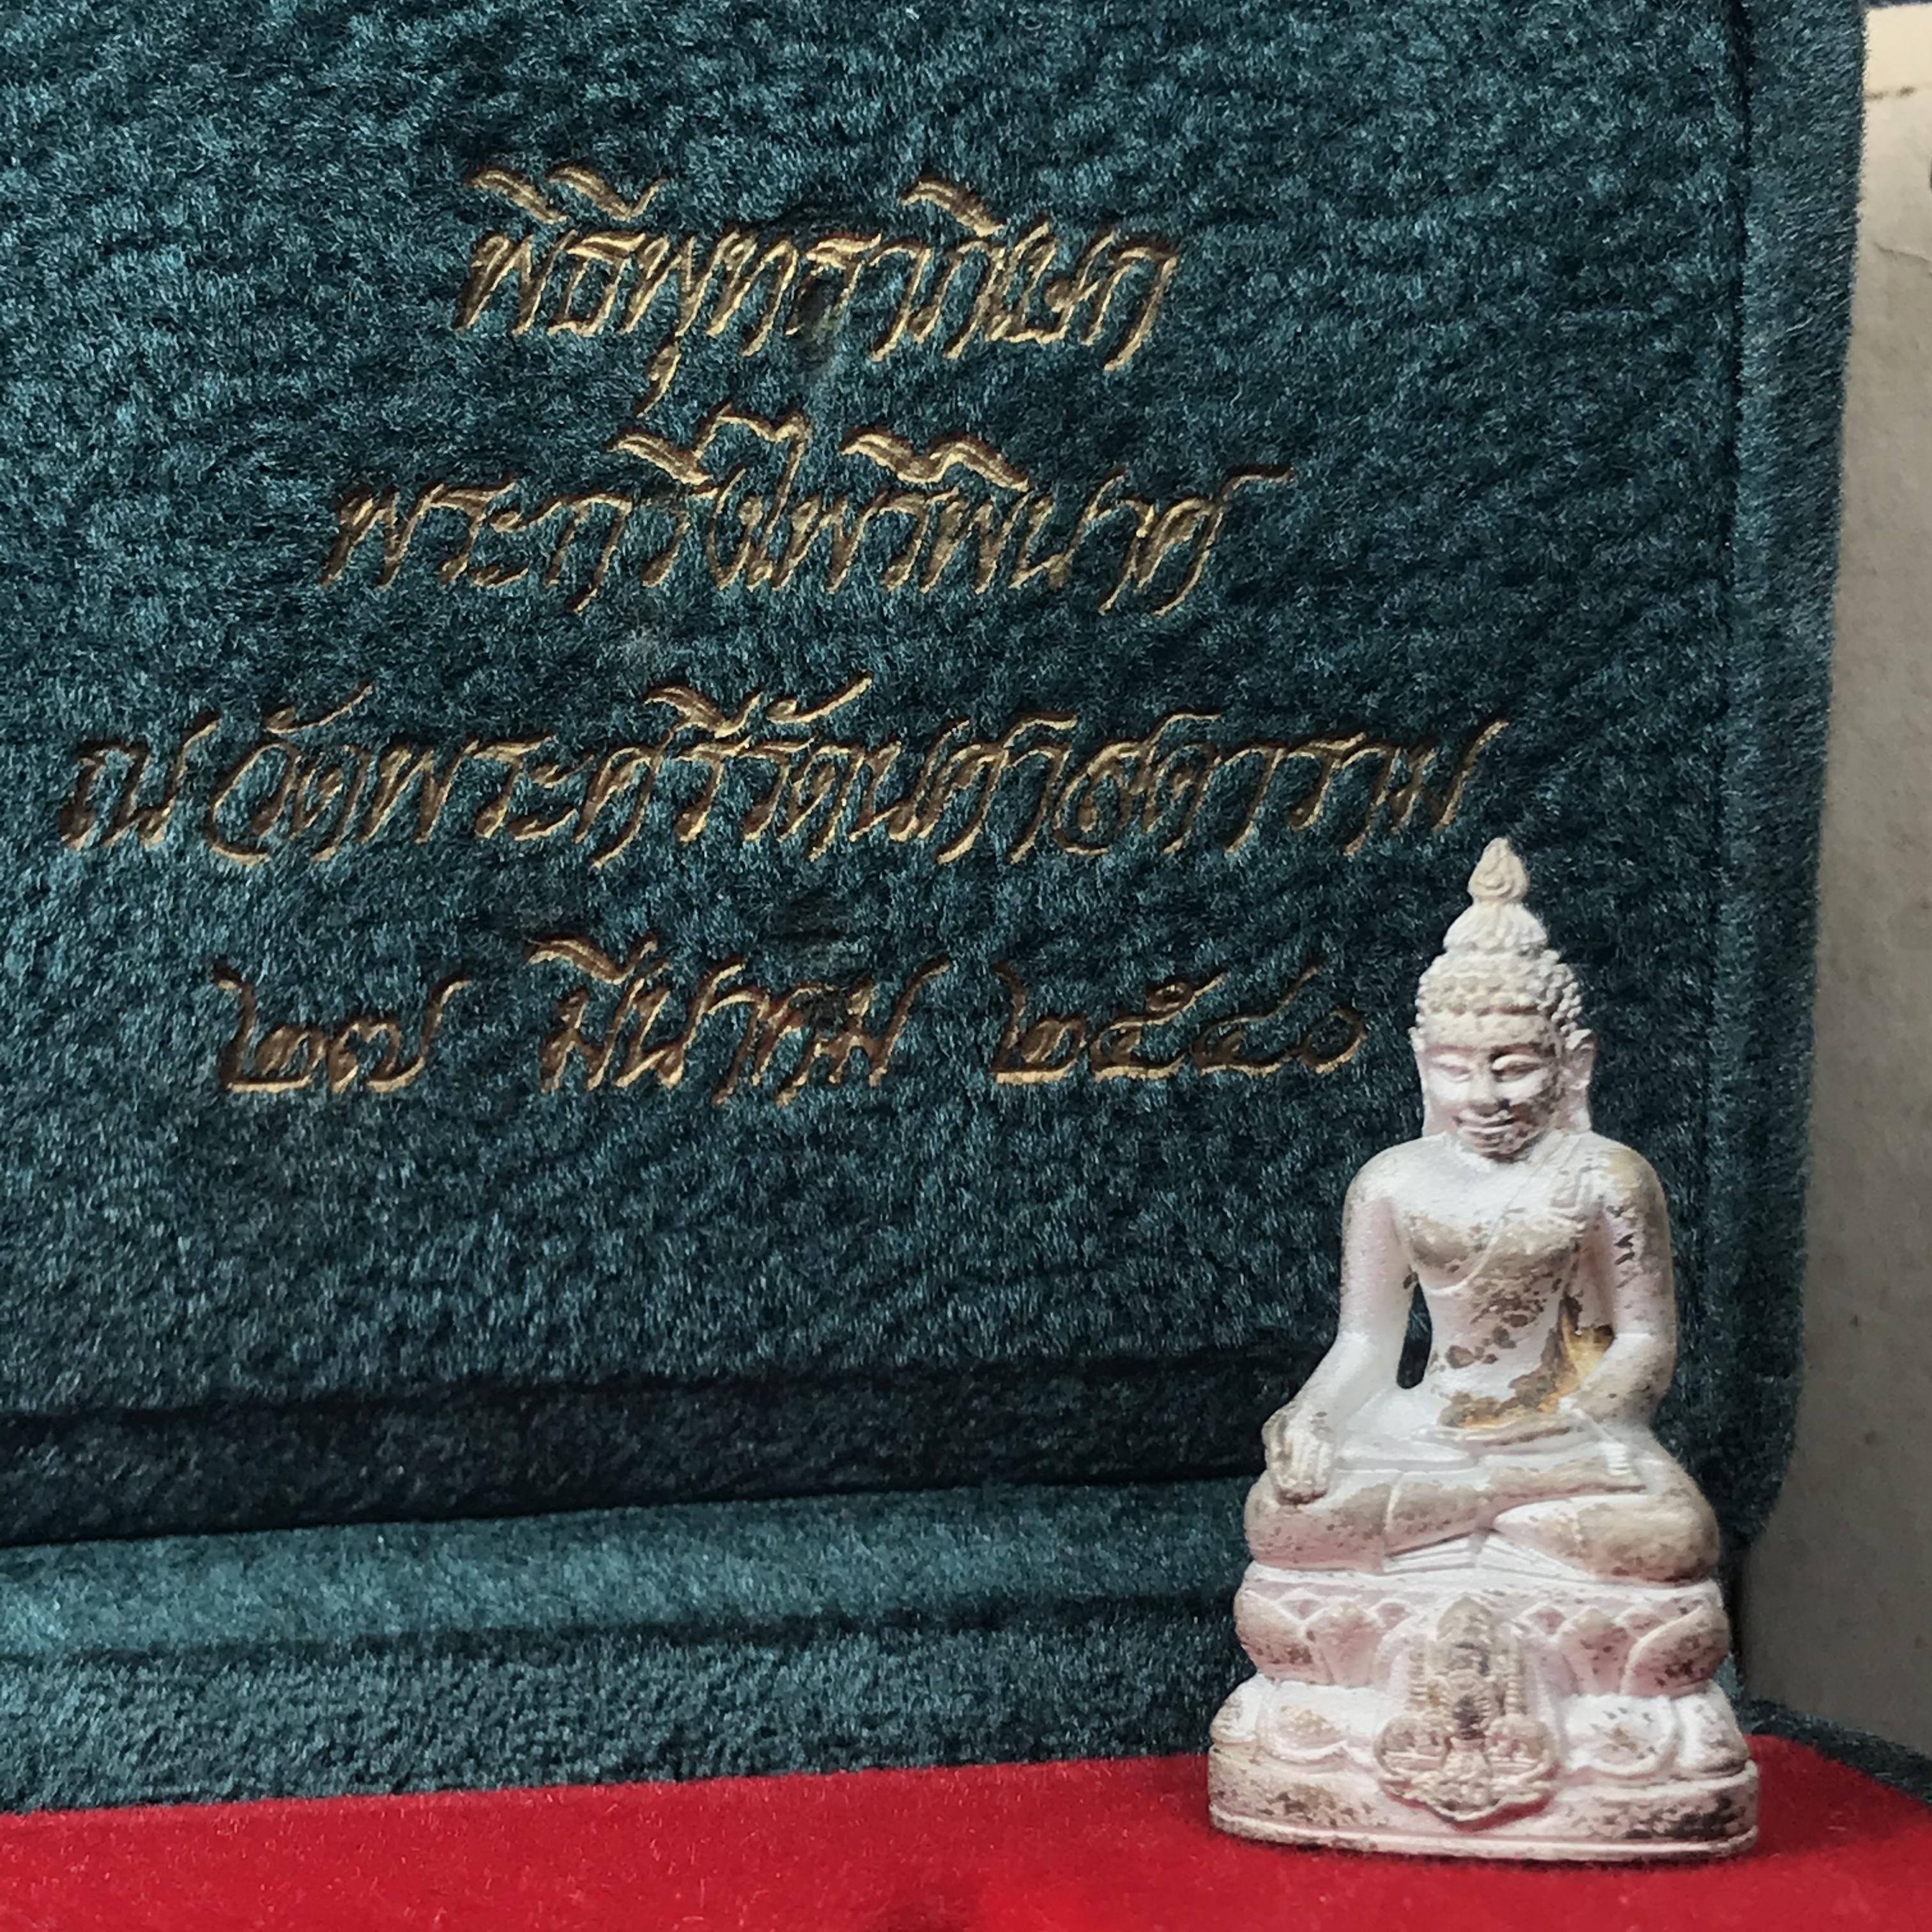 พิธีพุทธาภิเษก
พระกริ่งไพรีพินาศ
ณ วัดพระศรีรัตนศาสดาราม
๒๗ มีนาคม ๒๕๔๐